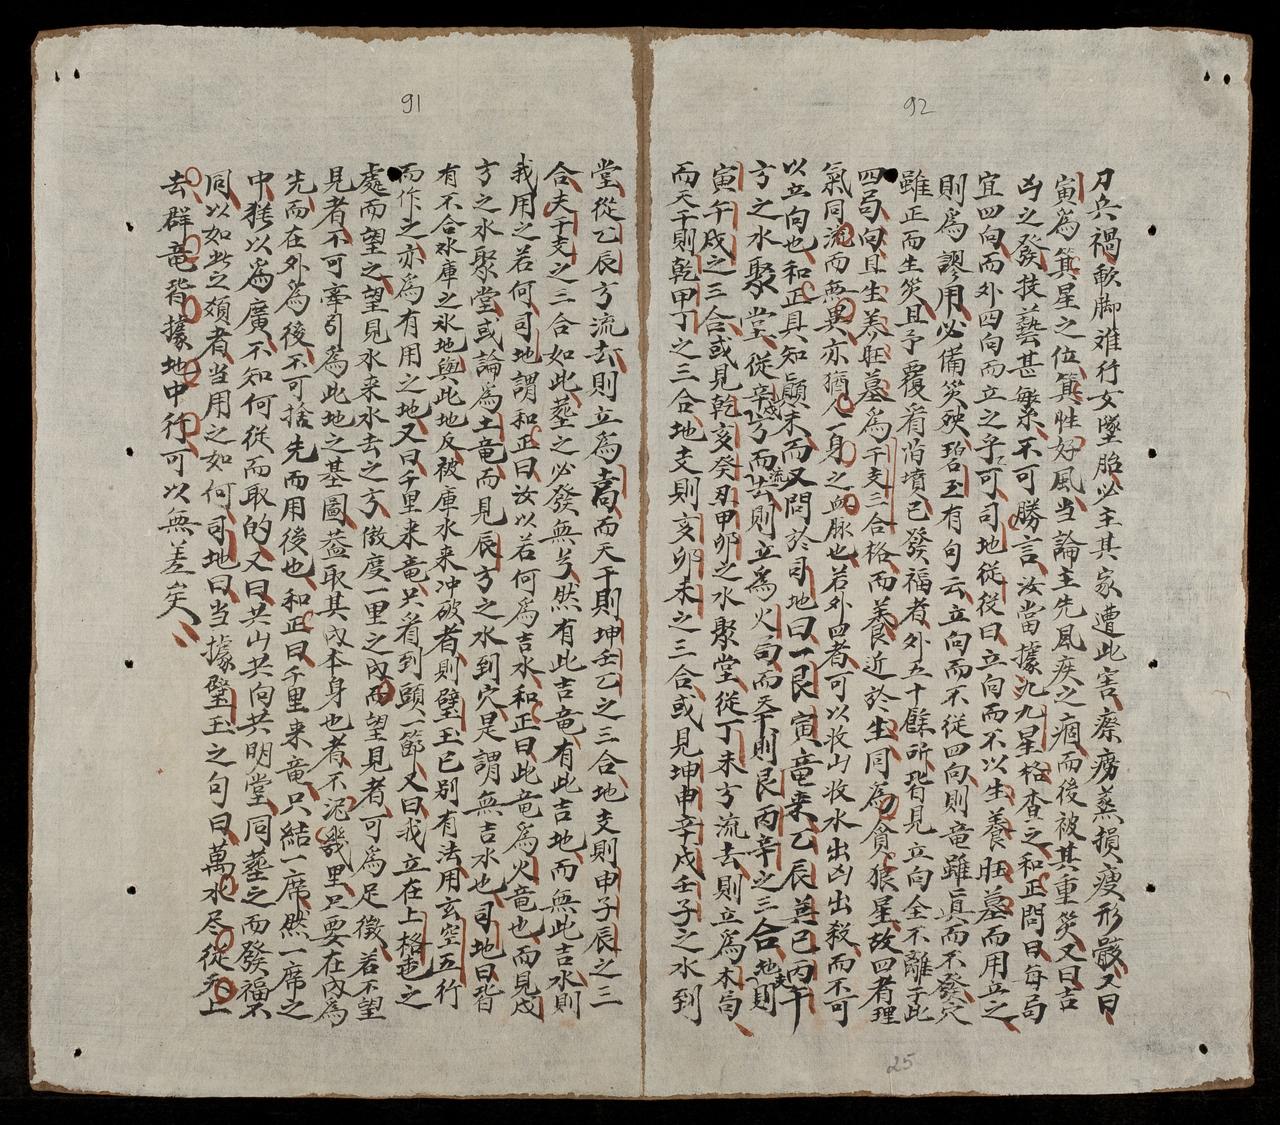 92
刀兵禍軟脚难行女墜胎必主其家遭此害瘵癆蒸損瘦形骸又曰
寅爲箕星之位箕性好風当論主先風疾之痼而後被其重災又曰吉
凶之發技藝甚繁不可勝言汝當據九九星格查之和正問曰每局
宜四向而外四向而立之乎可司地從從曰立向而不以生養旺墓而用立之
則爲謬用必備災殃碧玉有句云立向而不從四向則竜雖眞而不發穴
雖正而生災且予覆看旧墳已發福者外五十餘所皆見立向全不離于此
四局向且生养旺墓爲干支三合格而養近於生同爲貪狼星故四者理
氣同流而無異亦猶人一身之血脉也若外四者可以收山收水出凶出殺而不可
以立向也和正具知顚末而又問於司地曰一艮寅竜来乙辰巽巳丙午
方之水聚堂從辛戌方而流去則立爲火局而天干則艮丙辛之三合地支則
寅午戌之三合或見乾亥癸丑甲卯之水聚堂從丁未方流去則立爲木局
而天干則乾甲丁之三合地支則亥卯未之三合或見坤申辛戌壬子之水到
25
91
堂從乙辰方流去則立爲而天干則坤壬乙之三合地支則申子辰之三
合夫干支之三合如此塟之必發無兮然有此吉竜有此吉地而無此吉水則
我用之若何司地謂和正曰汝以若何爲吉水和正曰此竜爲火竜也而見戌
方之水聚堂或論爲土竜而見辰方之水到穴是謂無吉水也司地曰皆
有不合水庫之水地與此地反被庫水来冲破者則璧玉已別有法用玄空五行
而作之亦爲有用之地又曰千里来竜只看到頭一節又曰我立在上格定之
處而望之望見水来水去之方倣度一里之內而望見者可爲足徵若不望
見者不可牽引爲此地之基圖葢取其內本身也者不泥幾里只要在內爲
先而在外爲後不可捨先而用後也和正曰千里来竜只結一席然一席之
中狹以爲廣不知何從而取的又曰共山共向共明堂同塟之而發福不
同以如此之類者当用之如何司地曰当據璧玉之句曰萬水尽從天上
去群竜皆據地中行可以無差矣